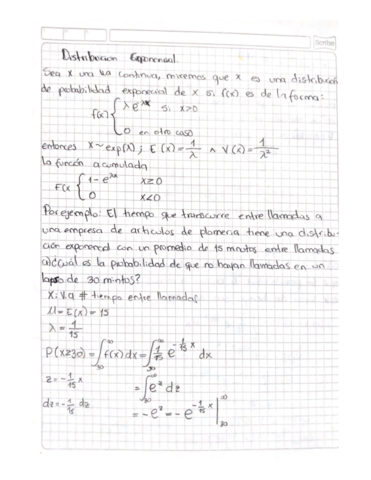 Scribe
Distribucion Exponencial.
Sea X una v.a continua, diremos que X es una distribución
de probabilidad exponencial de X si f(x) es de la forma:
f(x) { λ e^λx si x>0
0 en otro caso
entonces X~exp(λ); E(X)=1/λ ∧ V(X)=1/λ²
la función acumulada
F(X { 1-e^λx x≥0
0 x<0
Por ejemplo: El tiempo que transcurre entre llamadas a
una empresa de articulos de plomeria tiene una distribu-
ción exponencial con un promedio de 15 minutos entre llamadas
a)¿cuál es la probabilidad de que no hayan llamadas en un
lapso de 30 mintos?
X: V.a # tiempo entre llamadas
μ=E(x)=15
λ=1/15
P(x≥30)=∫₃₀^∞ f(x)dx=∫₃₀^∞ 1/15 e^-1/15 x dx
z=-1/15 x =∫₃₀^∞ e^z dz
dz=-1/15 dz =-e^z=-e^-1/15 x |₃₀^∞